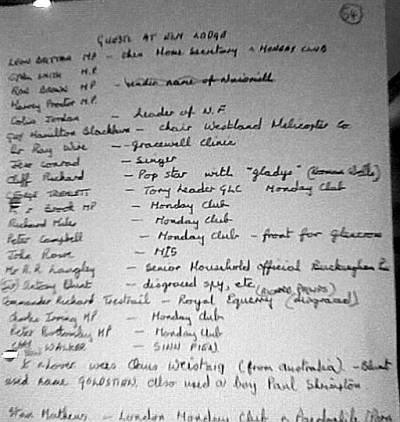 54
GUESTS AT ELM LODGE
LEON BRITTAN MP – then Home Secretary & MONDAY CLUB
CYRIL SMITH M.P.
RON BROWN MP –
Harvey Proctor M.P.
Colin Jordan – Leader of N.F.
Guy Hamilton Blackburn – Chair Westland Helicopter Co
Dr Ray Wire – Gracewell Clinic
Jess Conrad – Singer
Cliff Richard – Pop star with "gladys"
GEORGE TREMLETT – Tory Leader GLC Monday Club
MP – Monday Club
Richard Miles – Monday Club
Peter Campbell – Monday Club – front for
John Rowe – MI5
Mr R. R. Langley – Senior Household Official Buckingham
Sir Antony Blunt – disgraced spy, etc
Commander Richard Trestrail – Royal Equerry (disgraced)
Charles Irving MP – Monday Club
Peter Bottomley MP – Monday Club
WALKER – SINN FIEN
& Lover was (from Australia) – Blunt
used name GOLDSTIEN, also used a boy Paul
London Monday Club